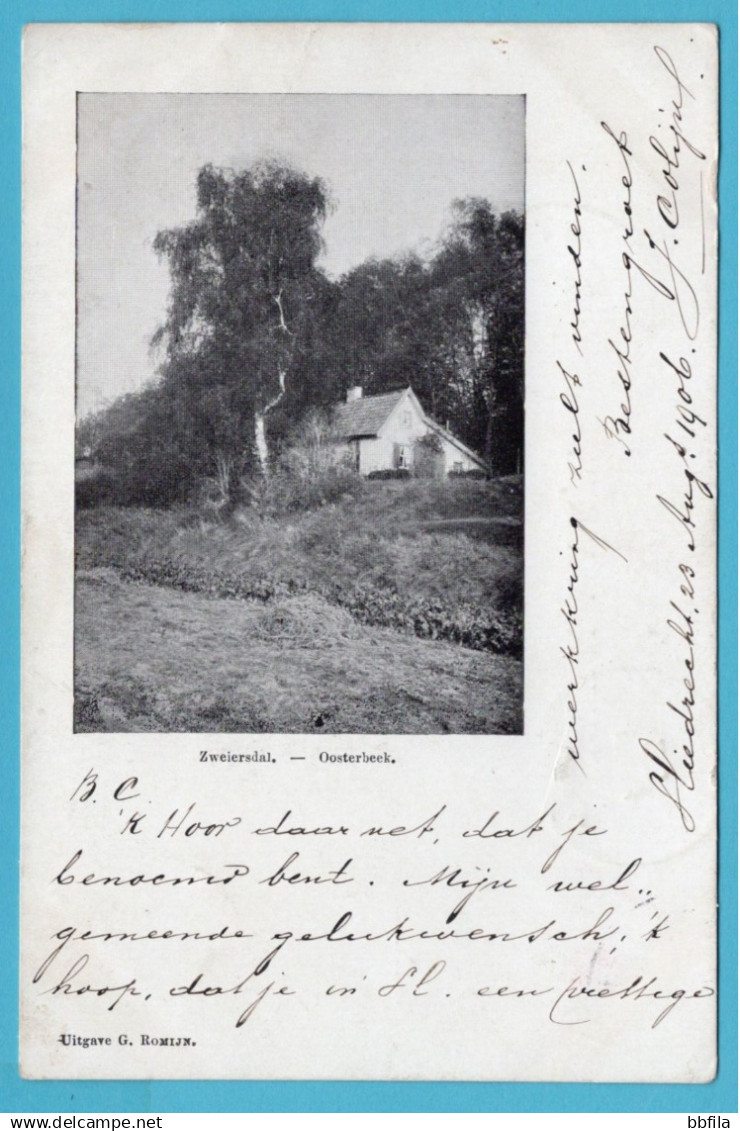 Zweiersdal. — Oosterbeek.
B. C.
'k Hoor daar net, dat je
benoemd bent. Mijn wel-
gemeende gelukwensch, 'k
hoop, dat je in Sl. een prettige
werkkring zult vinden.
Bestengroet
J. Colijn.
Sliedrecht, 23 Augs. 1906.
Uitgave G. Romijn.
bbfila